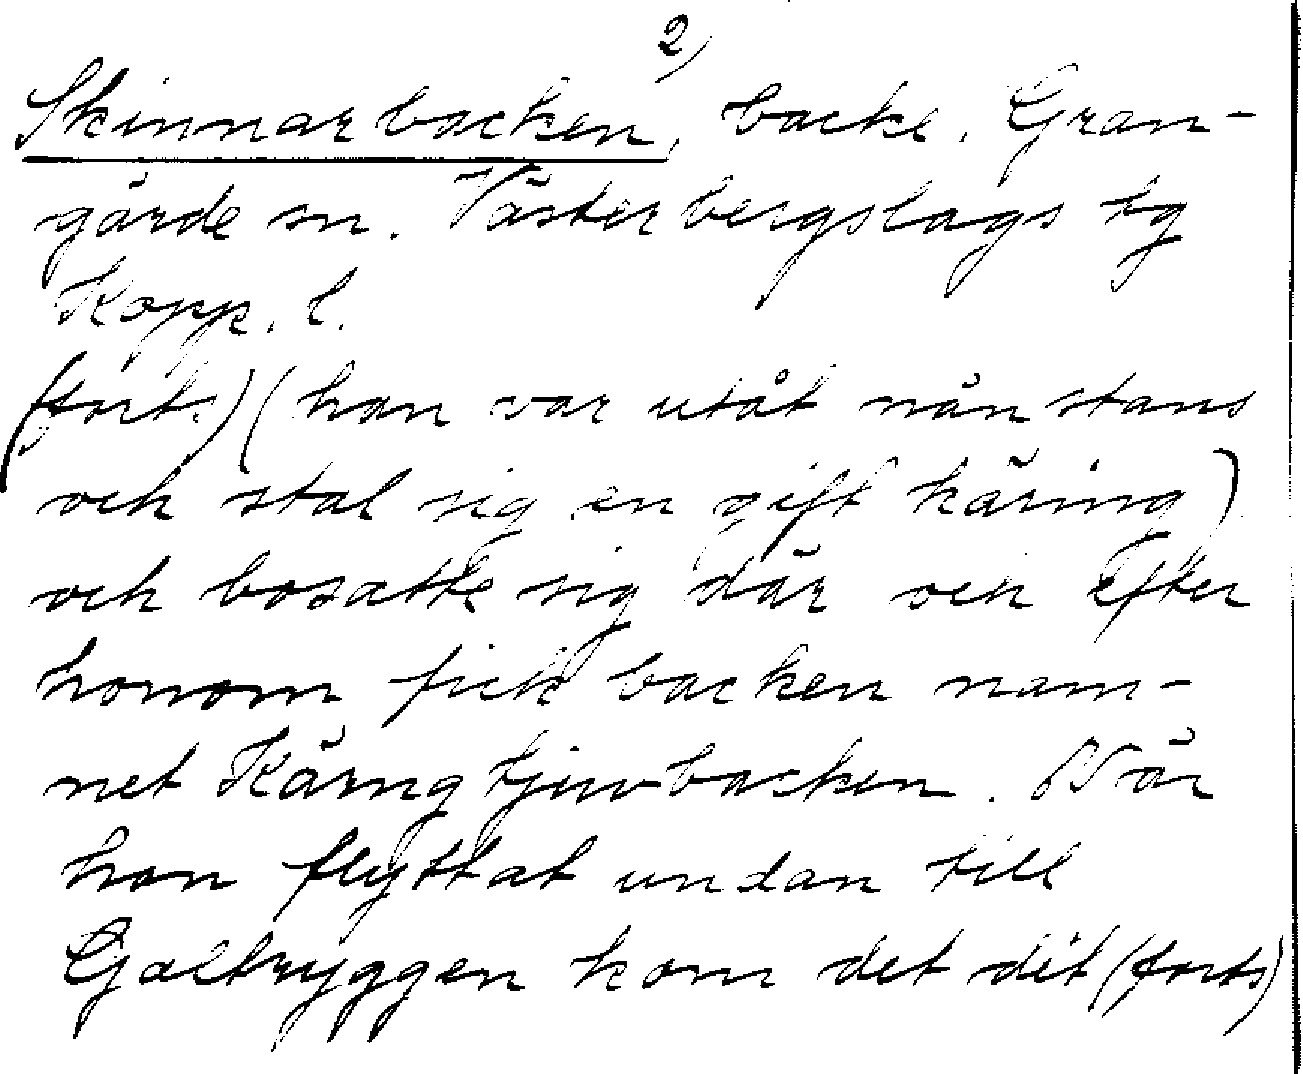 2)
Skinnarbacken, backe. Gran-
gärde sn. Västerbergslags tg
Kopp. l.
(forts.) (han var utåt nånstans
och stal sig en gift käring)
och bosatte sig där och efter
honom fick backen nam-
net Kärngtjuvbacken. När
han flyttat undan till
Galtryggen kom det dit (forts)